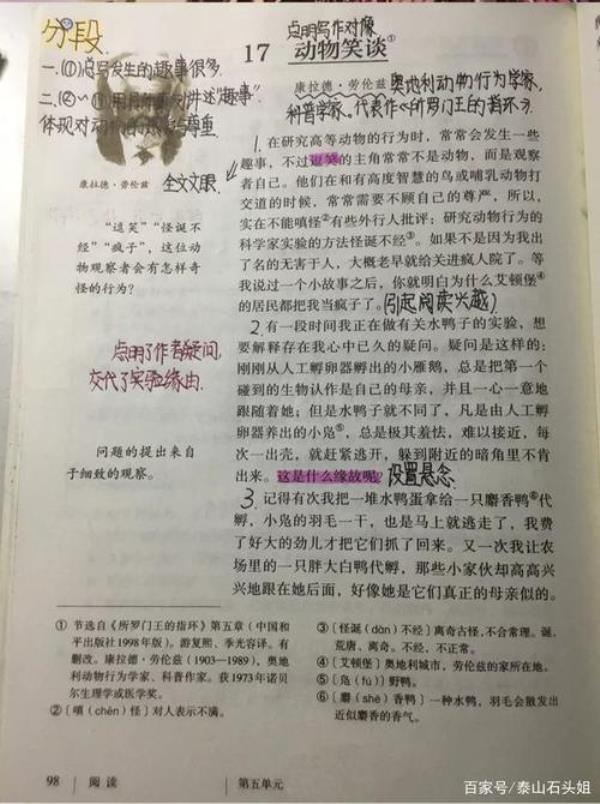 分段
一.①总写发生的趣事很多.
二.②～
讲述"趣事"
体现对动物的
尊重
点明写作对像
17 动物笑谈①
康拉德·劳伦兹 奥地利动物行为学家、
科普学家。代表作《所罗门王的指环》
康拉德·劳伦兹
全文文眼
1.在研究高等动物的行为时,常常会发生一些
趣事,不过逗笑的主角常常不是动物,而是观察
者自己。他们在和有高度智慧的鸟或哺乳动物打
交道的时候,常常需要不顾自己的尊严,所以,
实在不能嗔怪②有些外行人批评:研究动物行为的
科学家实验的方法怪诞不经③。如果不是因为我出
了名的无害于人,大概老早就给关进疯人院了。等
我说过一个小故事之后,你就明白为什么艾顿堡④
的居民都把我当疯子了。(引起阅读兴趣)
“逗笑”“怪诞不
经”“疯子”,这位动
物观察者会有怎样奇
怪的行为?
2.有一段时间我正在做有关水鸭子的实验,想
要解释存在我心中已久的疑问。疑问是这样的:
刚刚从人工孵卵器孵出的小雁鹅,总是把第一个
碰到的生物认作是自己的母亲,并且一心一意地
跟随着她;但是水鸭子就不同了,凡是由人工孵
卵器养出的小凫⑤,总是极其羞怯,难以接近,每
次一出壳,就赶紧逃开,躲到附近的暗角里不肯
出来。这是什么缘故呢?设置悬念.
点明了作者疑问,
交代了实验缘由.
问题的提出来自
于细致的观察。
3.记得有次我把一堆水鸭蛋拿给一只麝香鸭⑥代
孵,小凫的羽毛一干,也是马上就逃走了,我费
了好大的劲儿才把它们抓了回来。又一次我让农
场里的一只胖大白鸭代孵,那些小家伙却高高兴
兴地跟在她后面,好像她是它们真正的母亲似的。
① 节选自《所罗门王的指环》第五章(中国和
平出版社1998年版)。游复熙、季光容译。有
删改。康拉德·劳伦兹(1903—1989),奥地
利动物行为学家、科普作家。获1973年诺贝
尔生理学或医学奖。
②〔嗔(chēn)怪〕对人表示不满。
③〔怪诞(dàn)不经〕离奇古怪,不合常理。诞,
荒唐、离奇。不经,不正常。
④〔艾顿堡〕奥地利城市,劳伦兹的家所在地。
⑤〔凫(fú)〕野鸭。
⑥〔麝(shè)香鸭〕一种水鸭,羽毛会散发出
近似麝香的香气。
98 阅读 第五单元
百家号/泰山石头姐